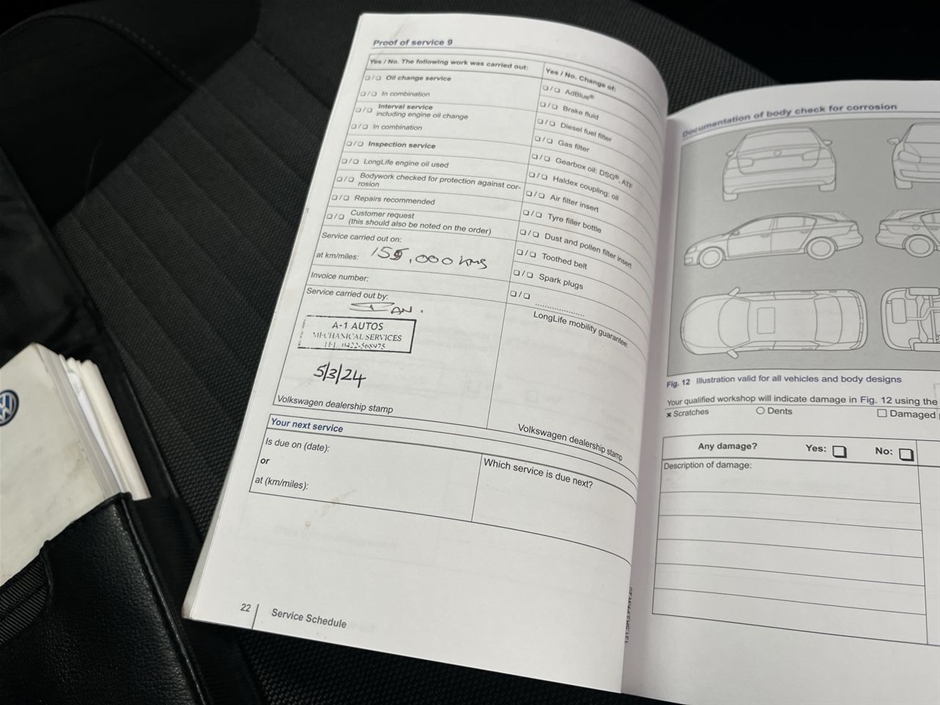 Proof of service 9
Yes / No. The following work was carried out:
☐/☐ Oil change service
☐/☐ In combination
☐/☐ Interval service
including engine oil change
☐/☐ In combination
☐/☐ Inspection service
☐/☐ LongLife engine oil used
☐/☐ Bodywork checked for protection against cor-
rosion
☐/☐ Repairs recommended
☐/☐ Customer request
(this should also be noted on the order)
Service carried out on:
at km/miles: 155,000 kms
Invoice number:
Service carried out by:
DAN.
A-1 AUTOS
MECHANICAL SERVICES
5/3/24
Volkswagen dealership stamp
Yes / No. Change of:
☐/☐ AdBlue®
☐/☐ Brake fluid
☐/☐ Diesel fuel filter
☐/☐ Gas filter
☐/☐ Gearbox oil: DSG®, ATF
☐/☐ Haldex coupling: oil
☐/☐ Air filter insert
☐/☐ Tyre filler bottle
☐/☐ Dust and pollen filter insert
☐/☐ Toothed belt
☐/☐ Spark plugs
☐/☐ ...............
LongLife mobility guarantee
Volkswagen dealership stamp
Your next service
Is due on (date):
or
at (km/miles):
Which service is due next?
22 Service Schedule
Documentation of body check for corrosion
Fig. 12 Illustration valid for all vehicles and body designs
Your qualified workshop will indicate damage in Fig. 12 using the
× Scratches ○ Dents ☐ Damaged
Any damage? Yes: ☐ No: ☐
Description of damage: